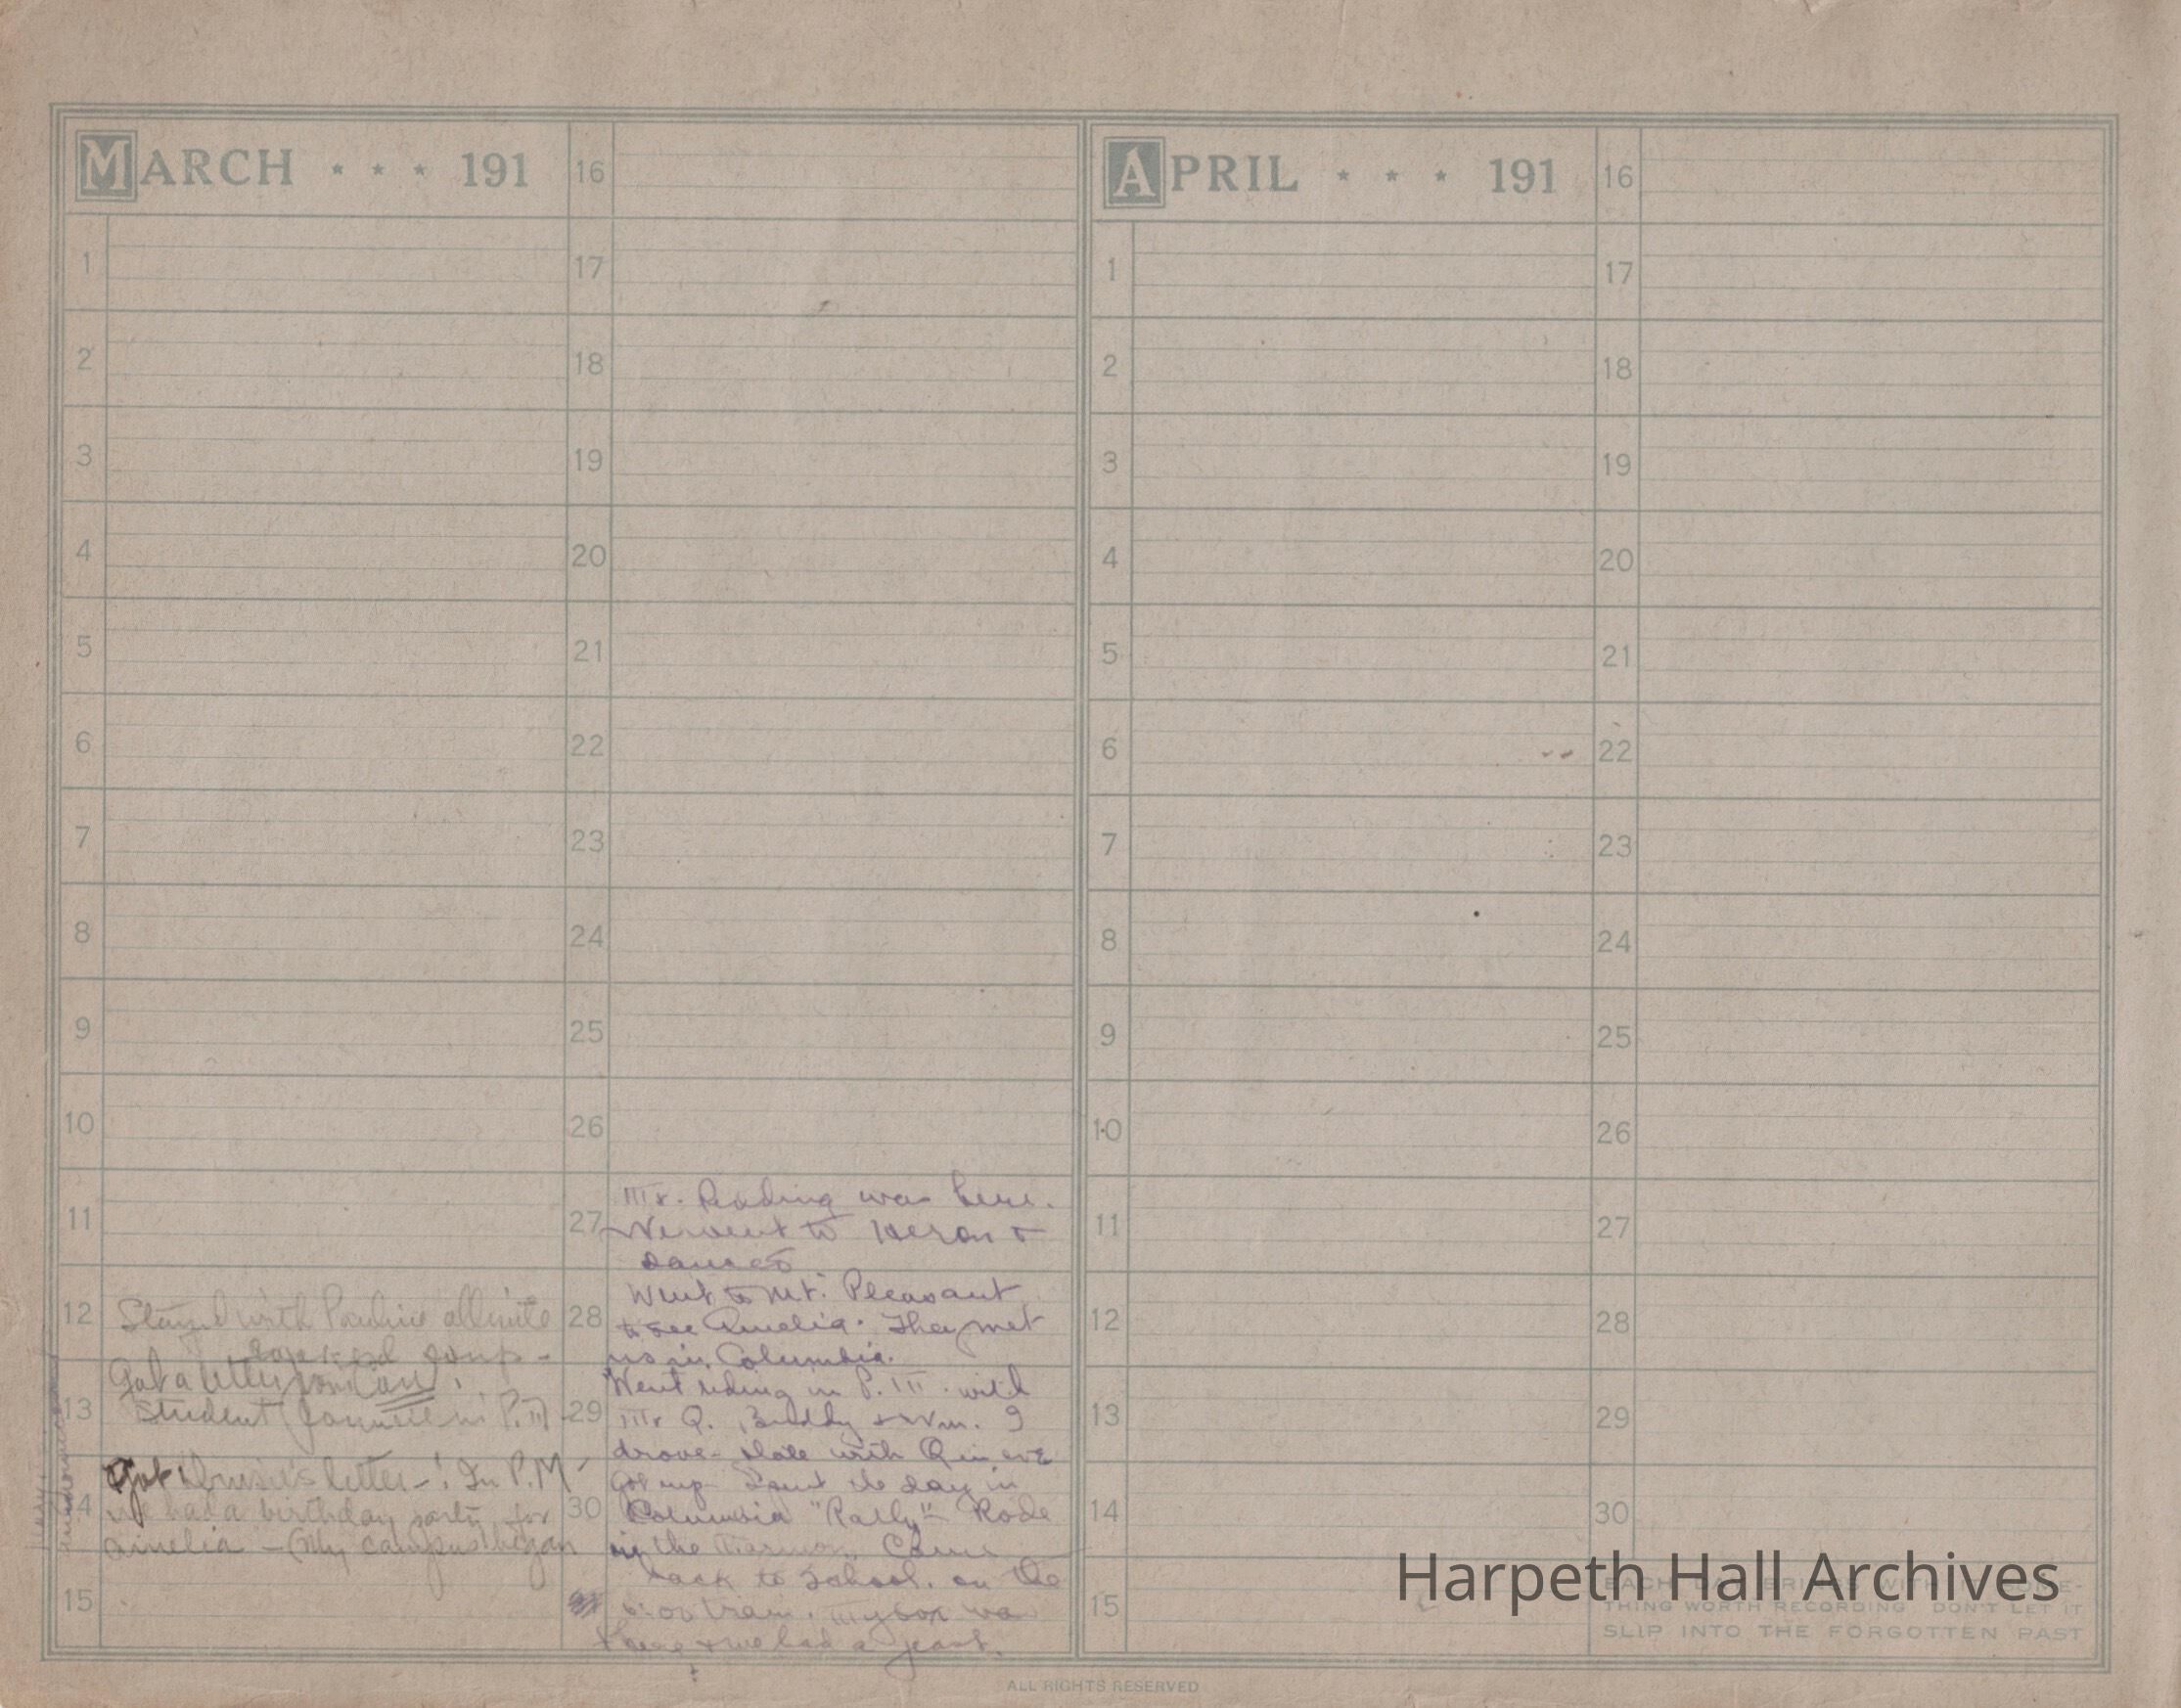 MARCH * * * 191
1
2
3
4
5
6
7
8
9
10
11
12 Stayed with Pauline all nite
cooked soup -
Got a letter from an
13 student (Jonnelle in P.M)
Got Drusie's letter -! In P.M
14 we had a birthday party for
Amelia - (My campus began
15
16
17
18
19
20
21
22
23
24
25
26
Mr. was here.
27 We went to Heron &
danced
Went to Mt. Pleasant
28 to see Amelia. They met
us in Columbia.
Went riding in P.M. with
29 Mr Q. , Buddy & Wm. I
drove - date with Q in eve
Got up Spent the day in
30 Columbia "Rally" - Rode
in the Came
back to School. on the
31 6:00 train. My box was
here & we had a feast.
APRIL * * * 191
1
2
3
4
5
6
7
8
9
10
11
12
13
14
15
16
17
18
19
20
21
22
23
24
25
26
27
28
29
30
EACH DAY BRINGS WITH IT SOME-
THING WORTH RECORDING DON'T LET IT
SLIP INTO THE FORGOTTEN PAST
ALL RIGHTS RESERVED
Harpeth Hall Archives